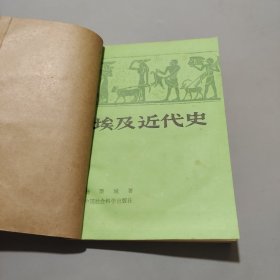 埃及近代史
著
中国社会科学出版社